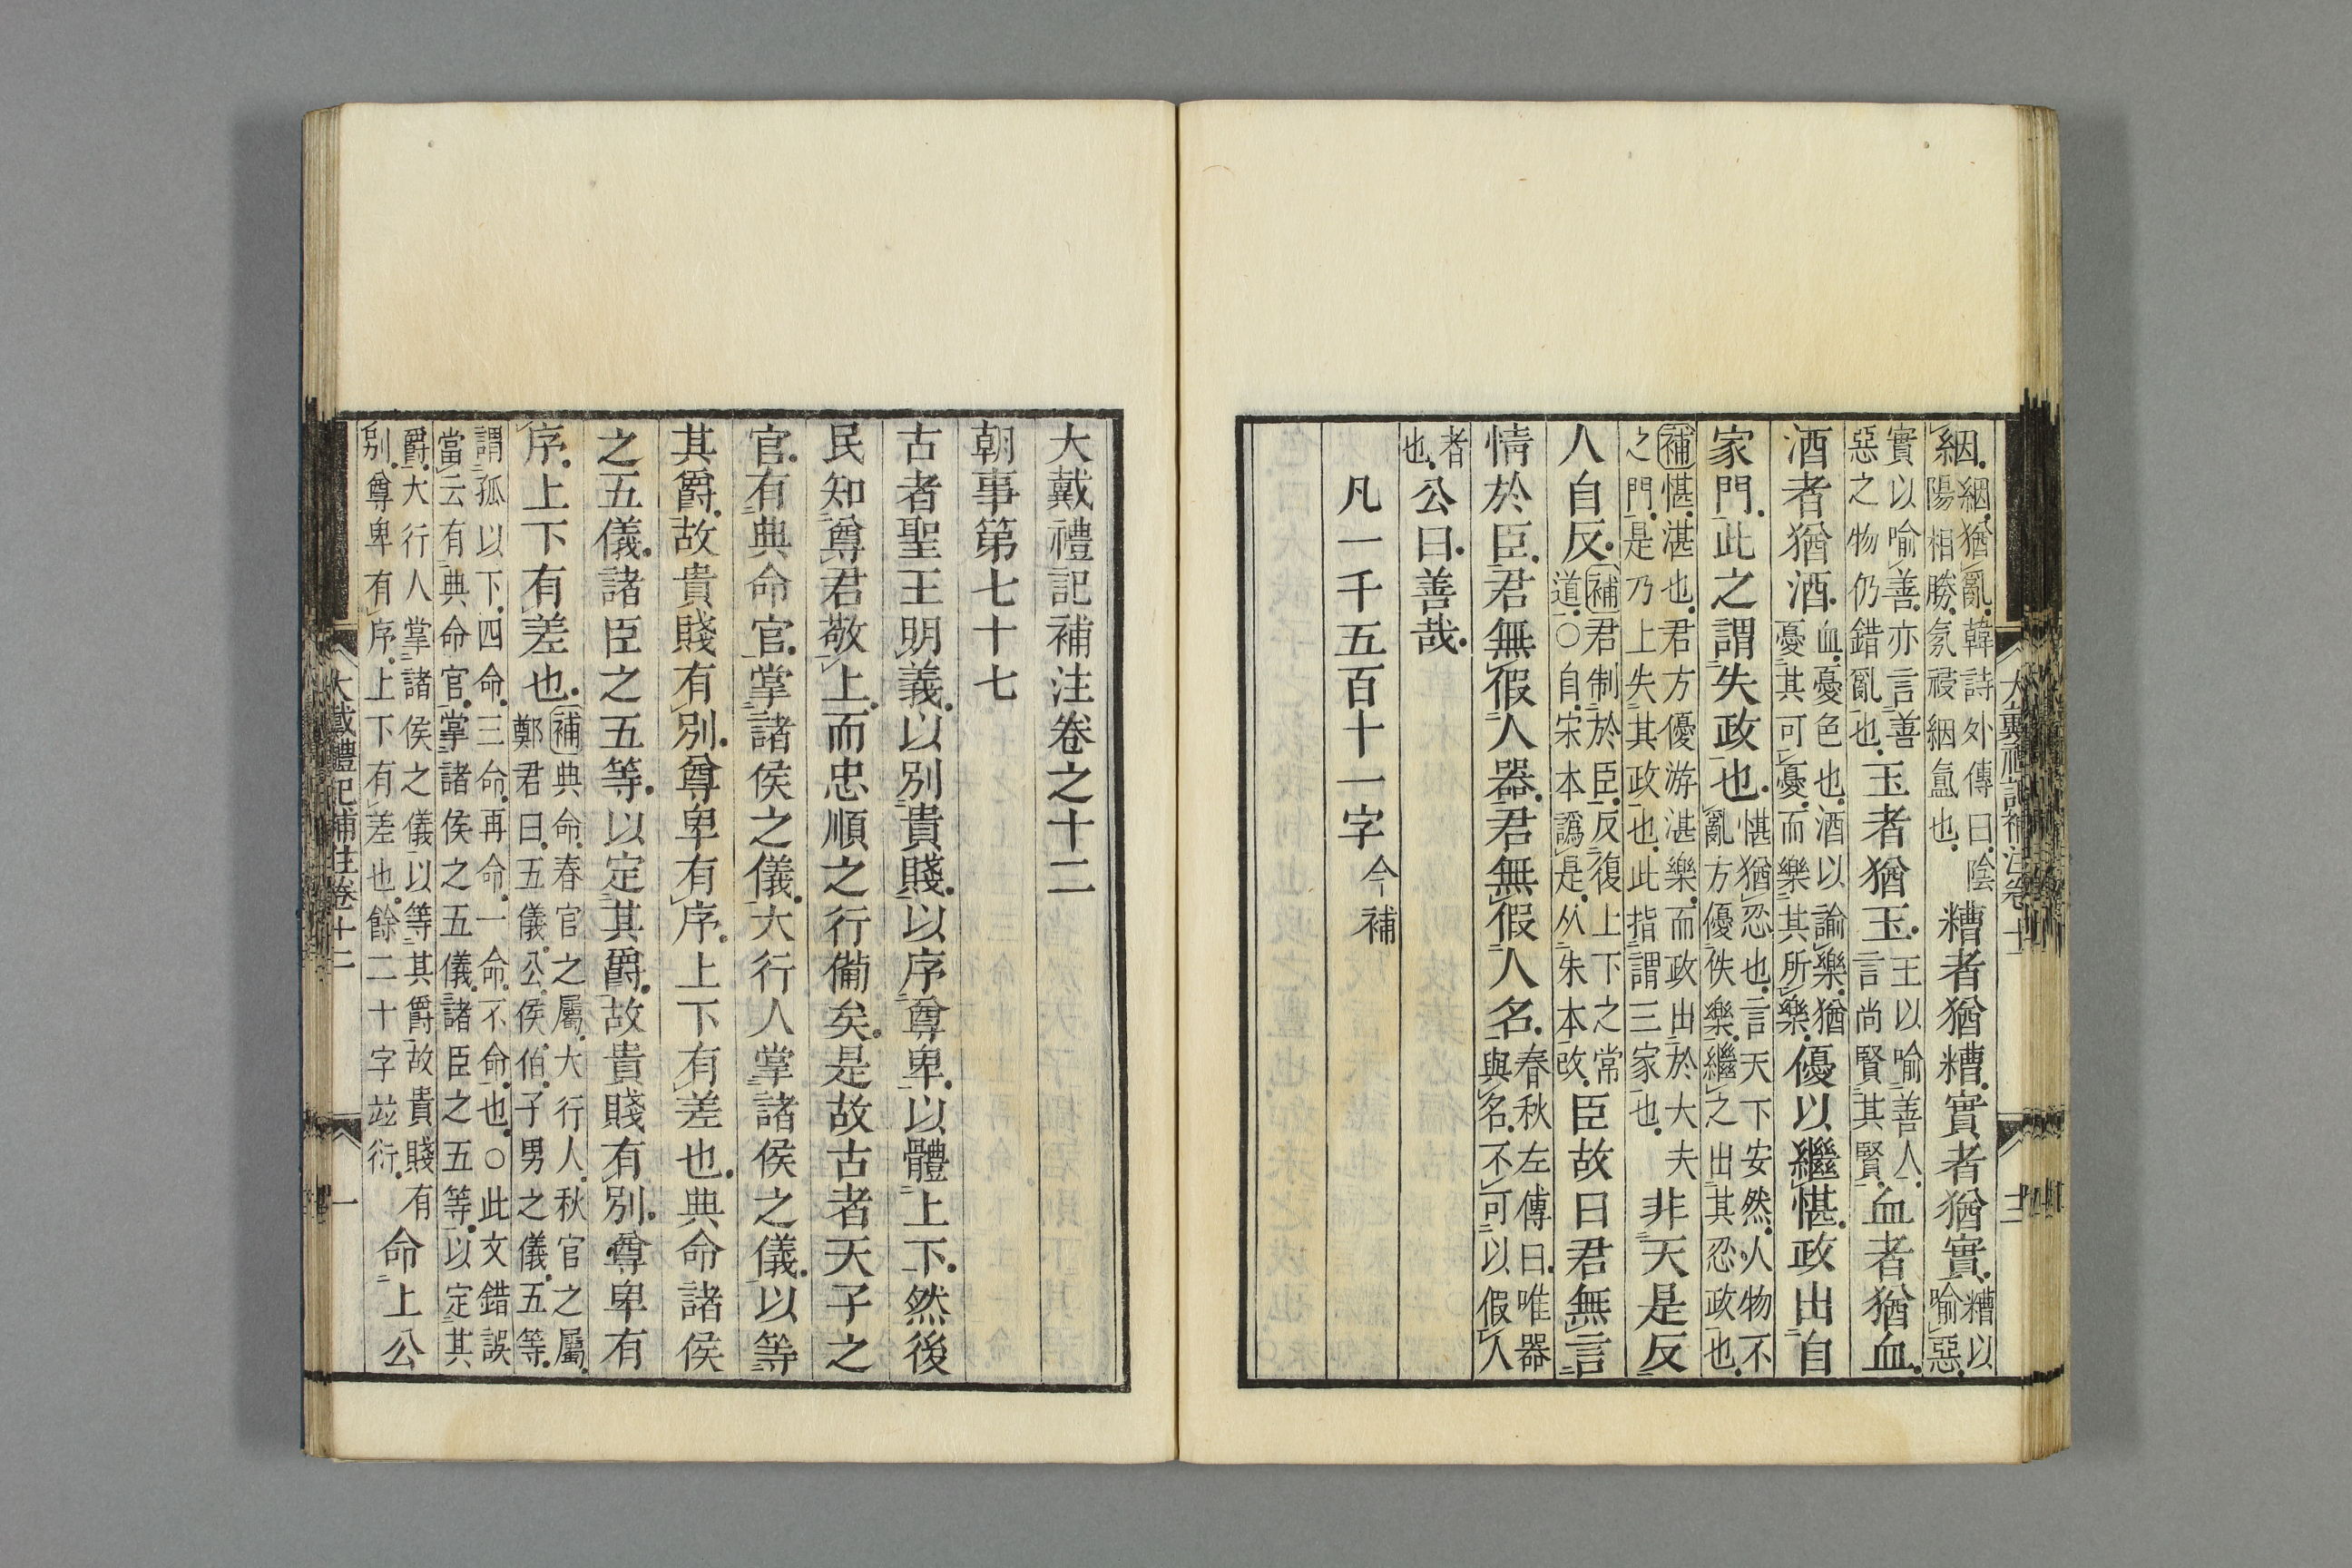 絪絪猶亂韓詩外傳曰陰陽相勝氛祲絪氳也糟者猶糟實者猶實糟以喻惡
實以喻善亦言善惡之物仍錯亂也玉者猶玉玉以喻善人言尚賢其賢血者猶血
酒者猶酒血憂色也酒以諭樂猶憂其可憂而樂其所樂優以繼愖政出自
家門此之謂失政也愖猶忍也言天下安然人物不亂方優佚樂繼之出其忍政也
補愖湛也君方優游湛樂而政出於大夫之門是乃上失其政也此指謂三家也非天是反
人自反補君制於臣反復上下之常道○自宋本譌是从朱本改臣故曰君無言
情於臣君無假人器君無假人名春秋左傳曰唯器與名不可以假人
者也公曰善哉
凡一千五百十一字今補
大戴禮記補注卷之十二
朝事第七十七
古者聖王明義以別貴賤以序尊卑以體上下然後
民知尊君敬上而忠順之行備矣是故古者天子之
官有典命官掌諸侯之儀大行人掌諸侯之儀以等
其爵故貴賤有別尊卑有序上下有差也典命諸侯
之五儀諸臣之五等以定其爵故貴賤有別尊卑有
序上下有差也補典命春官之屬大行人秋官之屬鄭君曰五儀公侯伯子男之儀五等
謂孤以下四命三命再命一命不命也○此文錯誤當云有典命官掌諸侯之五儀諸臣之五等以定其
爵大行人掌諸侯之儀以等其爵故貴賤有別尊卑有序上下有差也餘二十字竝衍命上公
大戴禮記補注卷十二
一